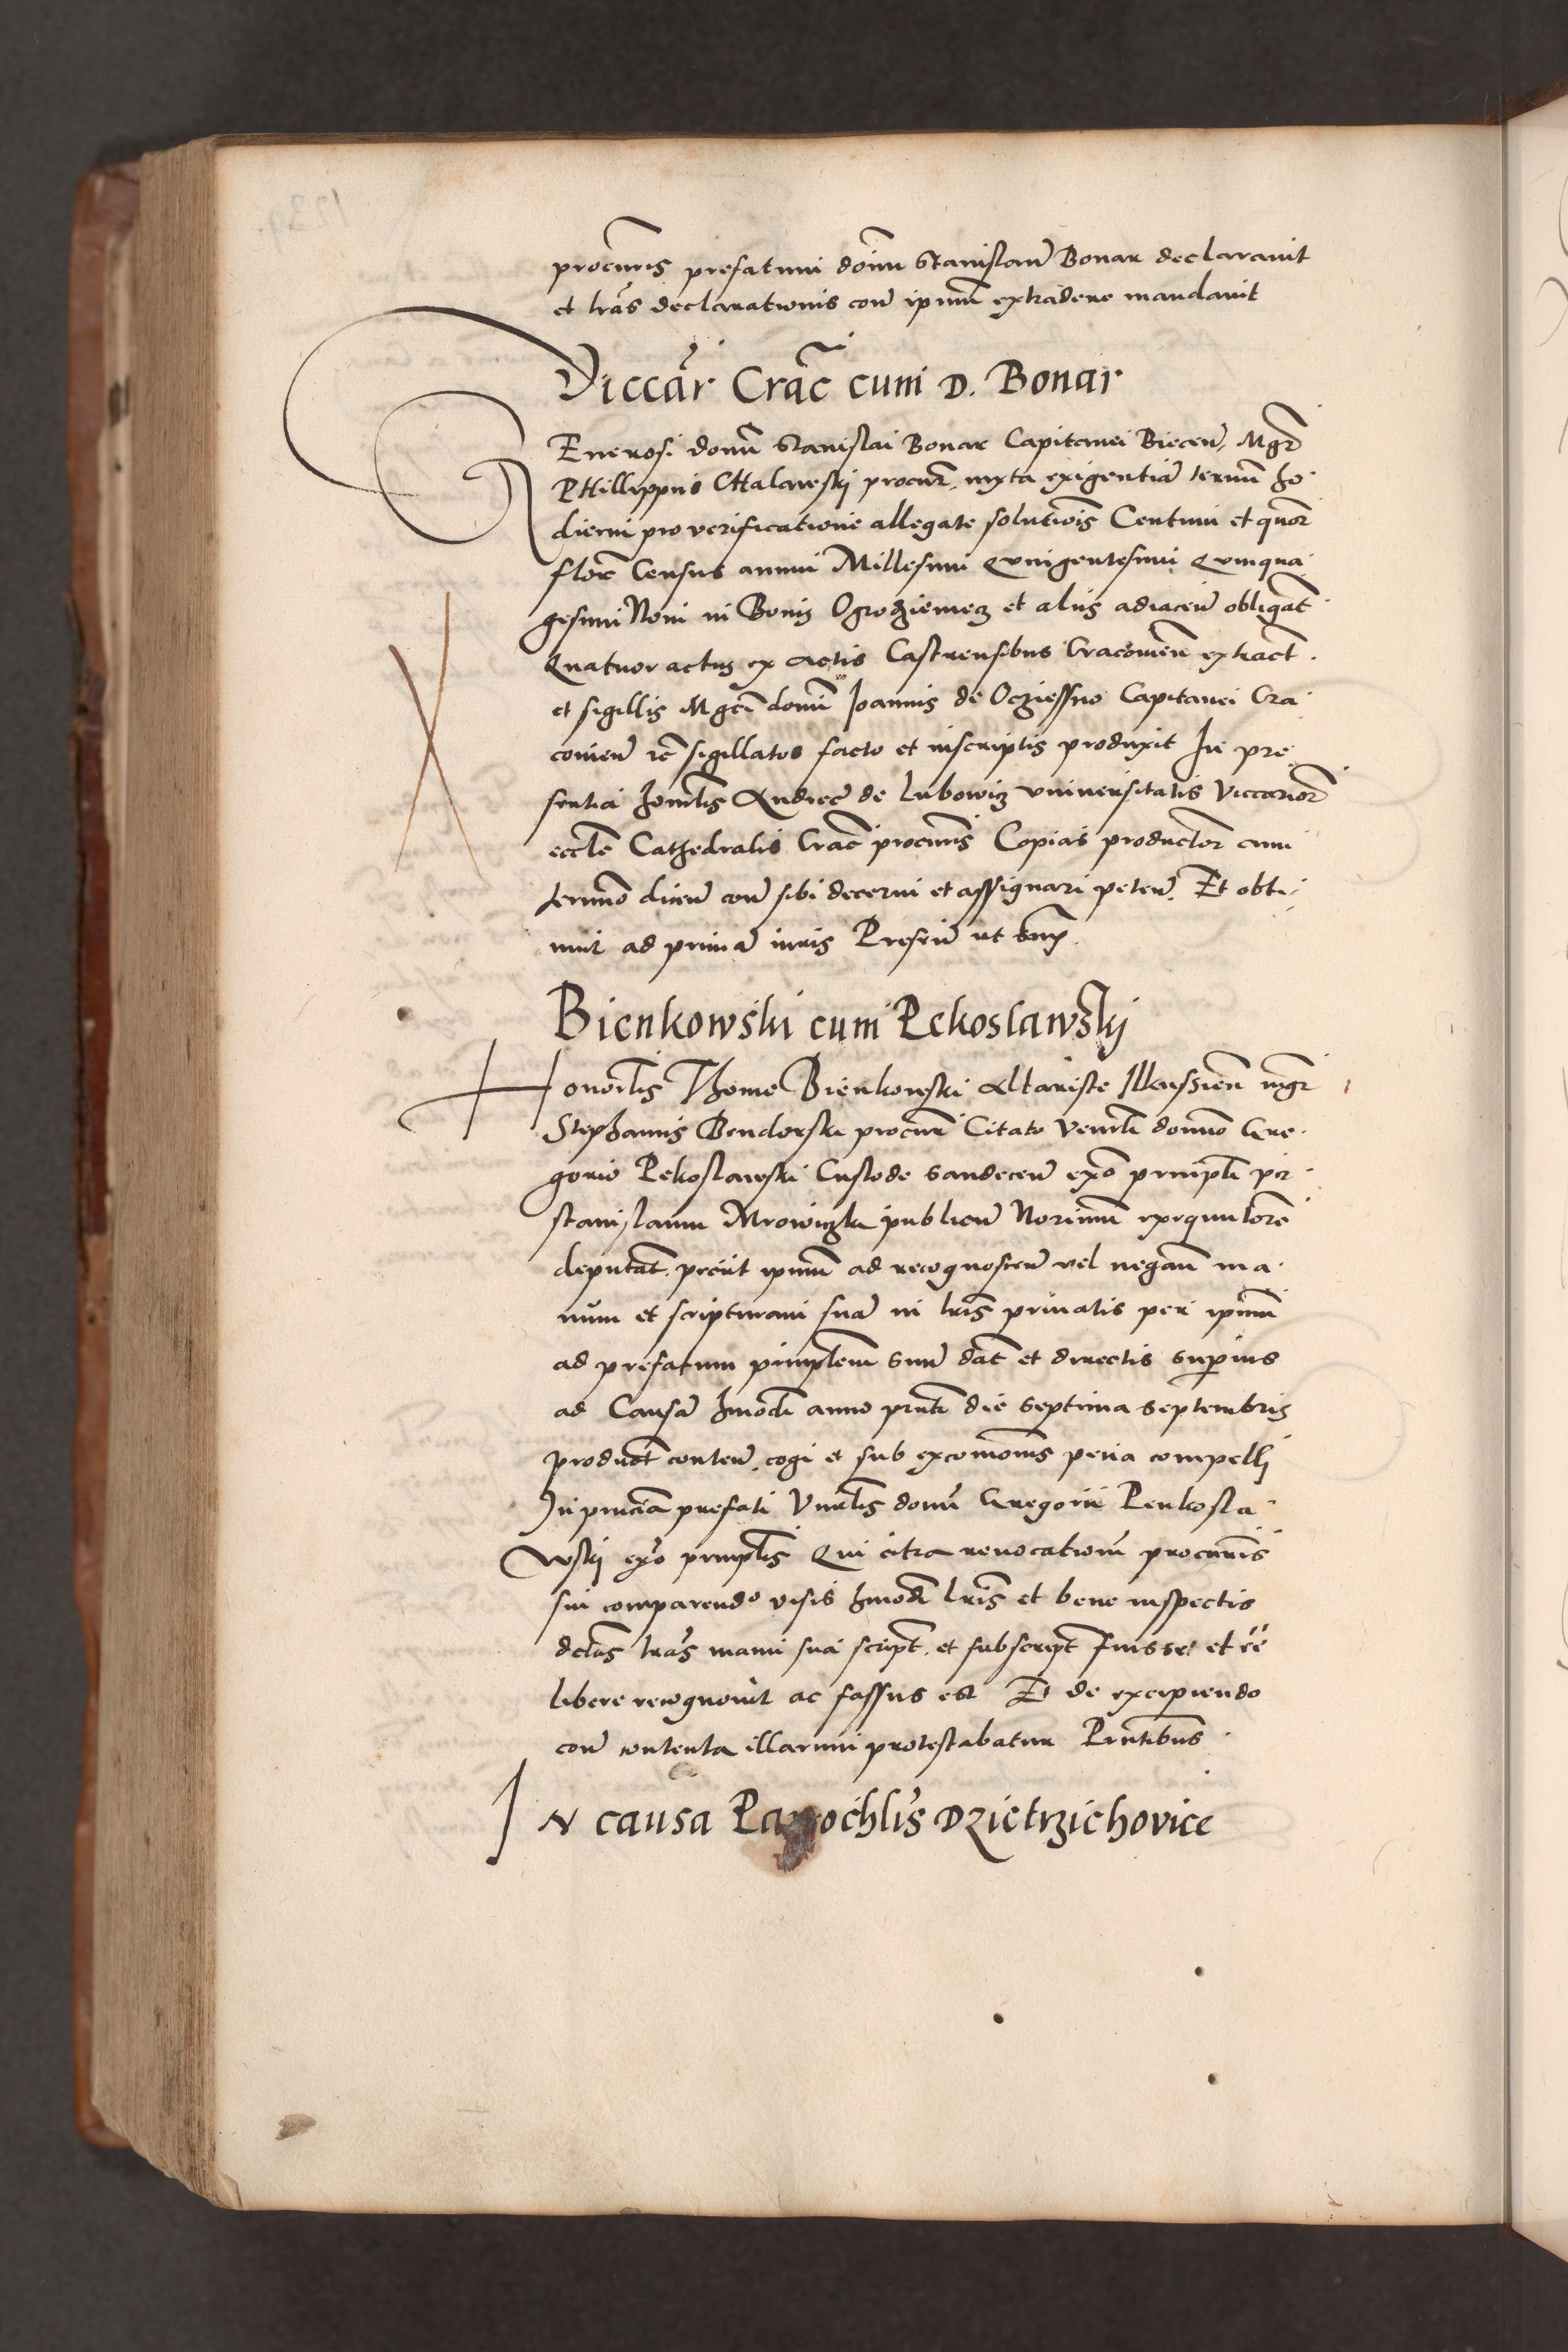 procuris prefatum domi Stanislaū Bonar declaravit
et lras declarationis con ipmu extradere mandavit
Viccār Crac cum D. Bonar
GEnerosi domi Stanislai Bonar Capitanei Biecen, Mgr
PHilippus CHalawski procur, iuxta exigentiā termi ho
dierni pro verificatione allegate solutiois Centum et quor
flor Census annui Millesimi Quingentesimi Quinqua
gesimi Noni in Bonis Ogrodzieniecz et aliis adiacen obligat
Quatuor actus ex Actis Castrensibus Cracovien extract.
et sigillis Mgci domi Joannis de Ocziessno Capitanei Cra
covien sigillatos facto et in scriptis produxit In pre
sentia honlis Andree de Lubowicz universitatis Viccarior
eccle Cathedralis Crac procuris Copias productor cum
termo dicen con sibi decerni et assignari peten. Et obti
nuit ad primā iuris Presen ut
Bienkowski cum Pekoslawskij
Honorlis Thome Bienkowski Altariste Ilkussien mgr
Stephanus Bendorski procur Citato Venrli domo Gre
gorio Pekoslawski Custode Sandecen exo prinpli per
Stanislaum Mrowiczka publicu Norium exequutore
deputat. prout ipmu ad recognoscen vel negan ma
num et scripturam suā in lris privatis per ipmu
ad prefatum prinplem suu dat et directis superius
ad Causā hmodi anno prnti die Septima Septembris
product conten, cogi et sub excomonis pena compelli
In prncia prefati Vnrlis domi Gregorii Penkosla
wskij exo prinplis Qui citra revocationē procuris
sui comparendo visis hmodi lris et bene inspectis
dctas lras manu sua script. et subscript fuisse et ee
libere recognovit ac fassus est Et de excipiendo
con contenta illarum protestabatur Prntibus
IN causa Parrochlis Dzietrzichovice